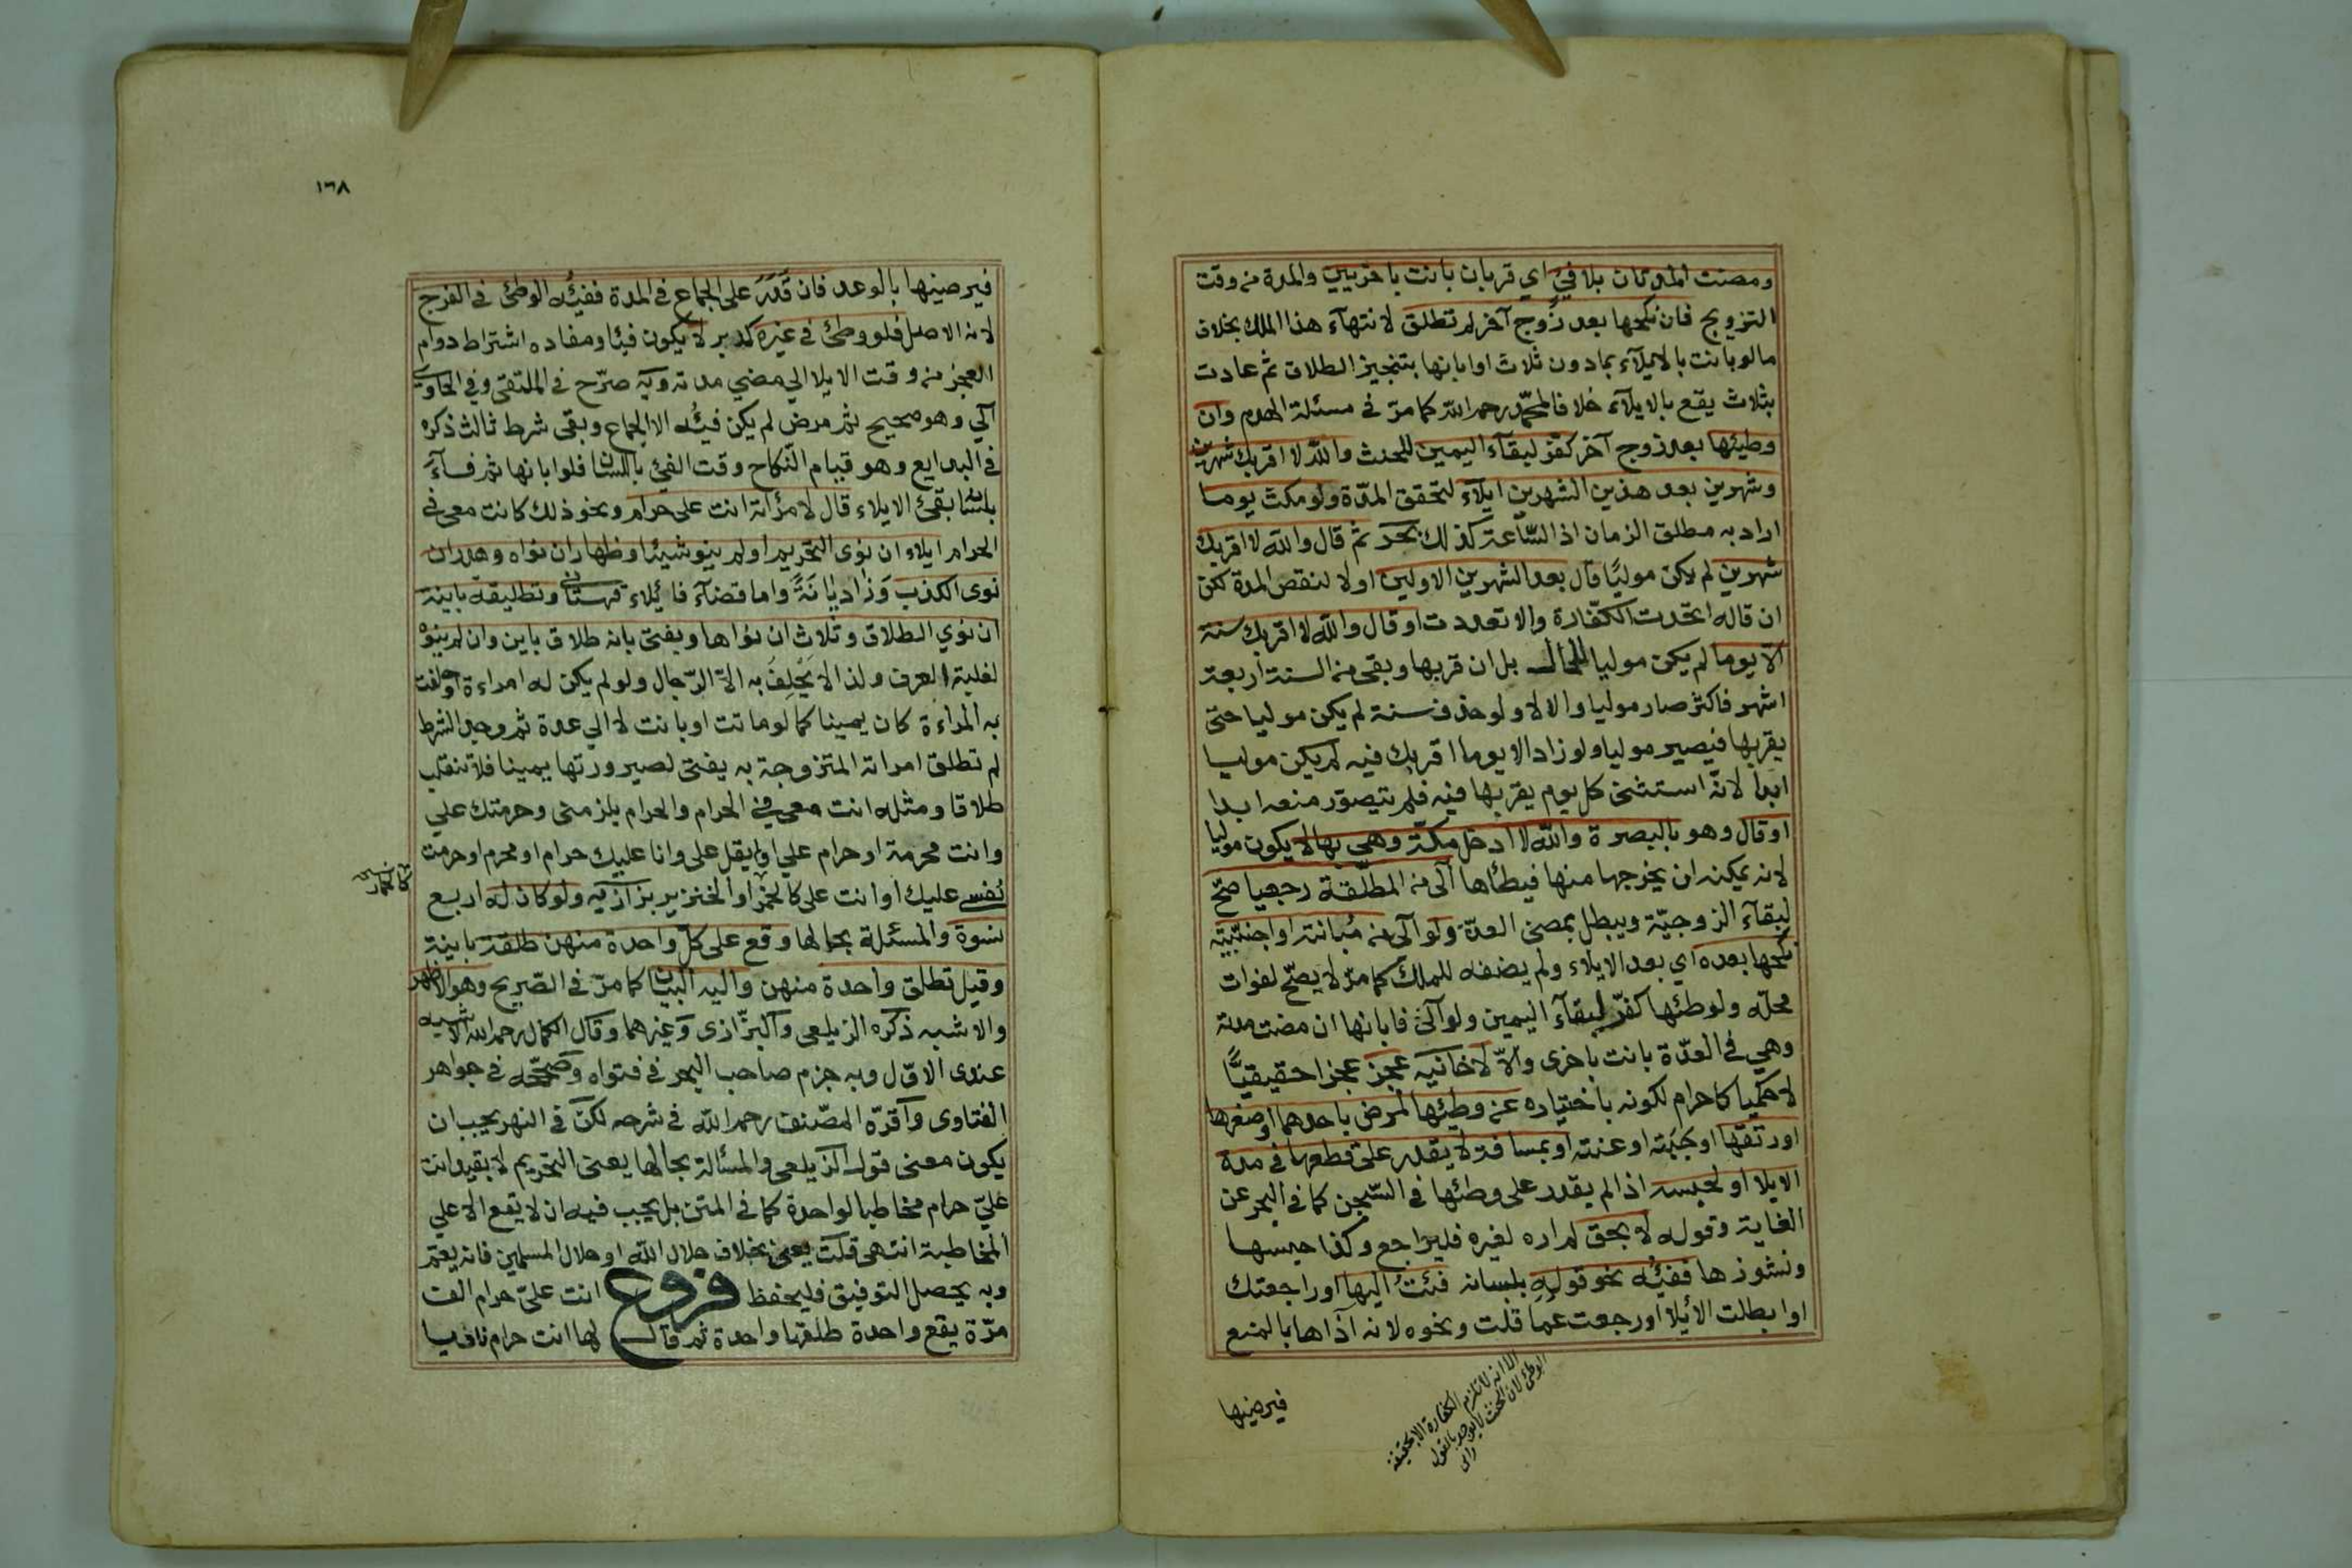 ومضت المدتان بلا فيئ اي قربان بانت باخريين والمدة من وقت
التزويج فان نكحها بعد زوج آخر لم تطلق لانتهآء هذا الملك بخلاف
مالو بانت بالايلآء بمادون ثلاث او ابانها بتنجيز الطلاق ثم عادت
بثلاث يقع بالايلآء خلافا لمحمّد رحمه الله كما مرّ في مسئلة الهدم وان
وطيئها بعد زوج آخر كفّر لبقآء اليمين للحنث والله لا اقربك شهرين
وشهرين بعد هذين الشهرين ايلآء لتحقق المدّة ولو مكث يوما
اراد به مطلق الزمان اذ السّاعة كذلك بحر ثم قال والله لا اقربك
شهرين لم يكن موليًا قال بعد الشهرين الاولين اولا لنقص المدة لكن
ان قاله اتحدت الكفّارة والا تعددت او قال والله لا اقربك سنة
الّا يوما لم يكن موليا للحال بل ان قربها وبقي من السنة اربعة
اشهر فاكثر صار موليا والا لا ولو حذف سنة لم يكن موليا حتى
يقربها فيصير موليا ولو زاد الا يوما اقربك فيه لم يكن موليا
ابدا لانّه استثنى كل يوم يقربها فيه فلم يتصوّر منعه ابدا
او قال وهو بالبصرة والله لا ادخل مكّة وهي بها لا يكون موليا
لانه يمكنه ان يخرجها منها فيطأها آلى من المطلّقة رجعيا صحّ
لبقآء الزوجيّة ويبطل بمضى العدّة ولو آلى من مُبانته او اجنبيّة
نكحها بعده اي بعد الايلاء ولم يضفه للملك كما مرّ لا يصّح لفوات
محلّه ولو وطئها كفّر لبقآء اليمين ولو آلىٰ فابانها ان مضت مدته
وهي في العدّة بانت باخرى والّا لا خانيه عجز عجزا حقيقيًّا
لا حكميا كاحرام لكونه باختياره عن وطيئها لمرض باحدهما او صغرها
او رتقها او جبّه او عنته او بمسافة لا يقدر على قطعها في مدة
الايلا او لحبسه اذا لم يقدر على وطئها في السّجن كما في البحر عن
الغاية وقوله لا بحق لم اره لغيره فليراجع وكذا حبسها
ونشوزها ففيئه نحو قوله بلسانه فئت اليها او راجعتك
او ابطلت الأيلا او رجعت عما قلت ونحوه لانه آذاها بالمنع
الا انه لا تلزم الكفارة الا بحقيقة
الوطئ لان الحنث لا يوجد بالقول
فيرضيها
١٦٨
فيرضيها بالوعد فان قَدَرَ على الجماع في المدة ففيئه الوطئ في الفرج
لانه الاصل فلو وطئ في غيره كدبر لا يكون فيئا ومفاده اشتراط دوام
العجز من وقت الايلا الي مضي مدته وبه صرّح في الملتقى وفي الحاوي
آلي وهو صحيح ثم مرض لم يكن فيئه الا الجماع وبقى شرط ثالث ذكره
في البدايع وهو قيام النكاح وقت الفيئ باللسان فلو ابانها ثم فآءَ
بلسانه بقى الايلاء قال لامرأته انت على حرام ونحو ذلك كانت معى في
الحرام ايلاء ان نوى التحريم او لم ينو شيئا وظهار ان نواه وهدر ان
نوى الكذب وَذا ديانَةً واما قضآء فايلاء قهستانى وتطليقة باينة
ان نوي الطلاق وثلاث ان نواها ويفتى بانه طلاق باين وان لم ينوه
لغلبة العرف ولذا لا يَحْلِفُ به الاّ الرّجال ولو لم يكن له امراءة او حلفت
به المراءة كان يمينا كما لو ماتت او بانت لا الي عدة ثم وجد الشرط
لم تطلق امراته المتزوجة به يفتى لصيرورتها يمينا فلا تنقلب
طلاقا ومثله انت معى في الحرام والحرام يلزمنى وحرمتك علي
وانت محرمة او حرام علي او لم يقل على وانا عليك حرام او محرم او حرمت
نفسى عليك او انت على كالخمر او الخنزير بزازيه ولو كان له اربع
نسوة والمسئلة بحالها وقع على كلّ واحدة منهن طلقة باينة
وقيل تطلق واحدة منهن واليه البيان كما مرّ في الصّريح وهو الاظهر
والاشبه ذكره الزيلعى والبزّازى وَغيرهما وقال الكمال رحمه الله الاشبه
عندى الاوّل وبه جزم صاحب البحر في فتواه وصَحّحه في جواهر
الفتاوى وآقرّه المصّنف رحمه الله في شرحه لكن في النهر يجب ان
يكون معنى قول الزيلعى والمسألة بحالها يعنى التحريم لا بقيد انت
عليّ حرام مخاطبا لواحدة كما في المتن بل يجب فيه ان لا يقع الا علي
المخاطبة انتهى قلت يعنى بخلاف حلال الله او حلال المسلمين فانه يعم
وبه يحصل التوفيق فليحفظ فروع انت عليّ حرام الف
مرّة يقع واحدة طلقها واحدة ثم قال لها انت حرام ناويا